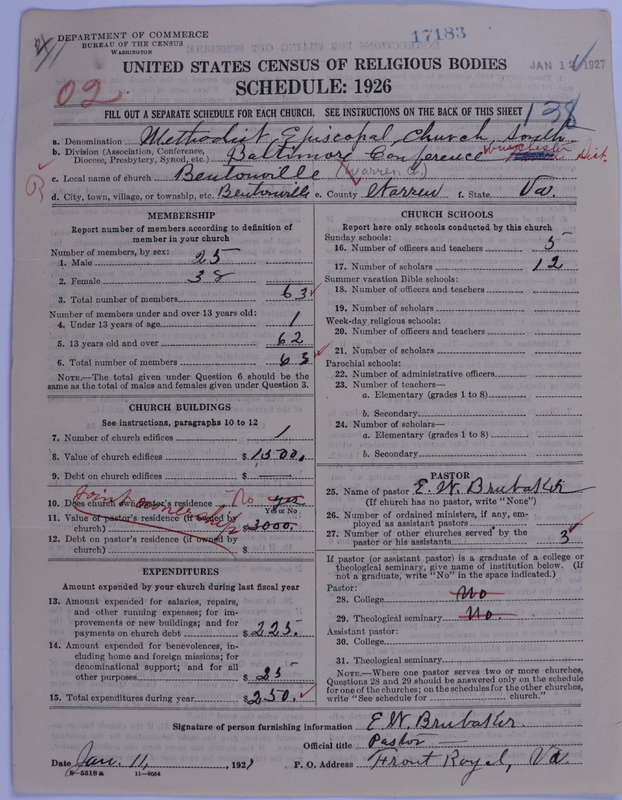 DEPARTMENT OF COMMERCE
BUREAU OF THE CENSUS
WASHINGTON
17183
JAN 12 1927
UNITED STATES CENSUS OF RELIGIOUS BODIES
SCHEDULE: 1926
02
FILL OUT A SEPARATE SCHEDULE FOR EACH CHURCH. SEE INSTRUCTIONS ON THE BACK OF THIS SHEET
138
a. Denomination Methodist Episcopal Church, South
b. Division (Association, Conference, Diocese, Presbytery, Synod, etc.) Baltimore Conference Winchester Dist.
c. Local name of church Bentonville (Warren C.)
d. City, town, village, or township, etc. Bentonville e. County Warren f. State Va.
MEMBERSHIP
Report number of members according to definition of
member in your church
Number of members, by sex:
1. Male 25
2. Female 38
3. Total number of members 63
Number of members under and over 13 years old:
4. Under 13 years of age 1
5. 13 years old and over 62
6. Total number of members 63
NOTE.—The total given under Question 6 should be the
same as the total of males and females given under Question 3.
CHURCH BUILDINGS
See instructions, paragraphs 10 to 12
7. Number of church edifices 1
8. Value of church edifices $1500.
9. Debt on church edifices $
10. Does church own pastor's residence No yes
Yes or No
Joint ownership
11. Value of pastor's residence (if owned by
church) $3000.
12. Debt on pastor's residence (if owned by
church) $
EXPENDITURES
Amount expended by your church during last fiscal year
13. Amount expended for salaries, repairs,
and other running expenses; for im-
provements or new buildings; and for
payments on church debt $225.
14. Amount expended for benevolences, in-
cluding home and foreign missions; for
denominational support; and for all
other purposes $25
15. Total expenditures during year $250.
CHURCH SCHOOLS
Report here only schools conducted by this church
Sunday schools:
16. Number of officers and teachers 5
17. Number of scholars 12
Summer vacation Bible schools:
18. Number of officers and teachers
19. Number of scholars
Week-day religious schools:
20. Number of officers and teachers
21. Number of scholars
Parochial schools:
22. Number of administrative officers
23. Number of teachers—
a. Elementary (grades 1 to 8)
b. Secondary
24. Number of scholars—
a. Elementary (grades 1 to 8)
b. Secondary
PASTOR
25. Name of pastor E. W. Brubaker
(If church has no pastor, write "None")
26. Number of ordained ministers, if any, em-
ployed as assistant pastors
27. Number of other churches served by the
pastor or his assistants 3
If pastor (or assistant pastor) is a graduate of a college or
theological seminary, give name of institution below. (If
not a graduate, write "No" in the space indicated.)
Pastor:
28. College No
29. Theological seminary No.
Assistant pastor:
30. College
31. Theological seminary
NOTE.—Where one pastor serves two or more churches,
Questions 28 and 29 should be answered only on the schedule
for one of the churches; on the schedules for the other churches,
write "See schedule for church."
Signature of person furnishing information E. W. Brubaker
Official title Pastor
Date Jan. 11, 192 P. O. Address Front Royal, Va.
8—5518 a 11—9064